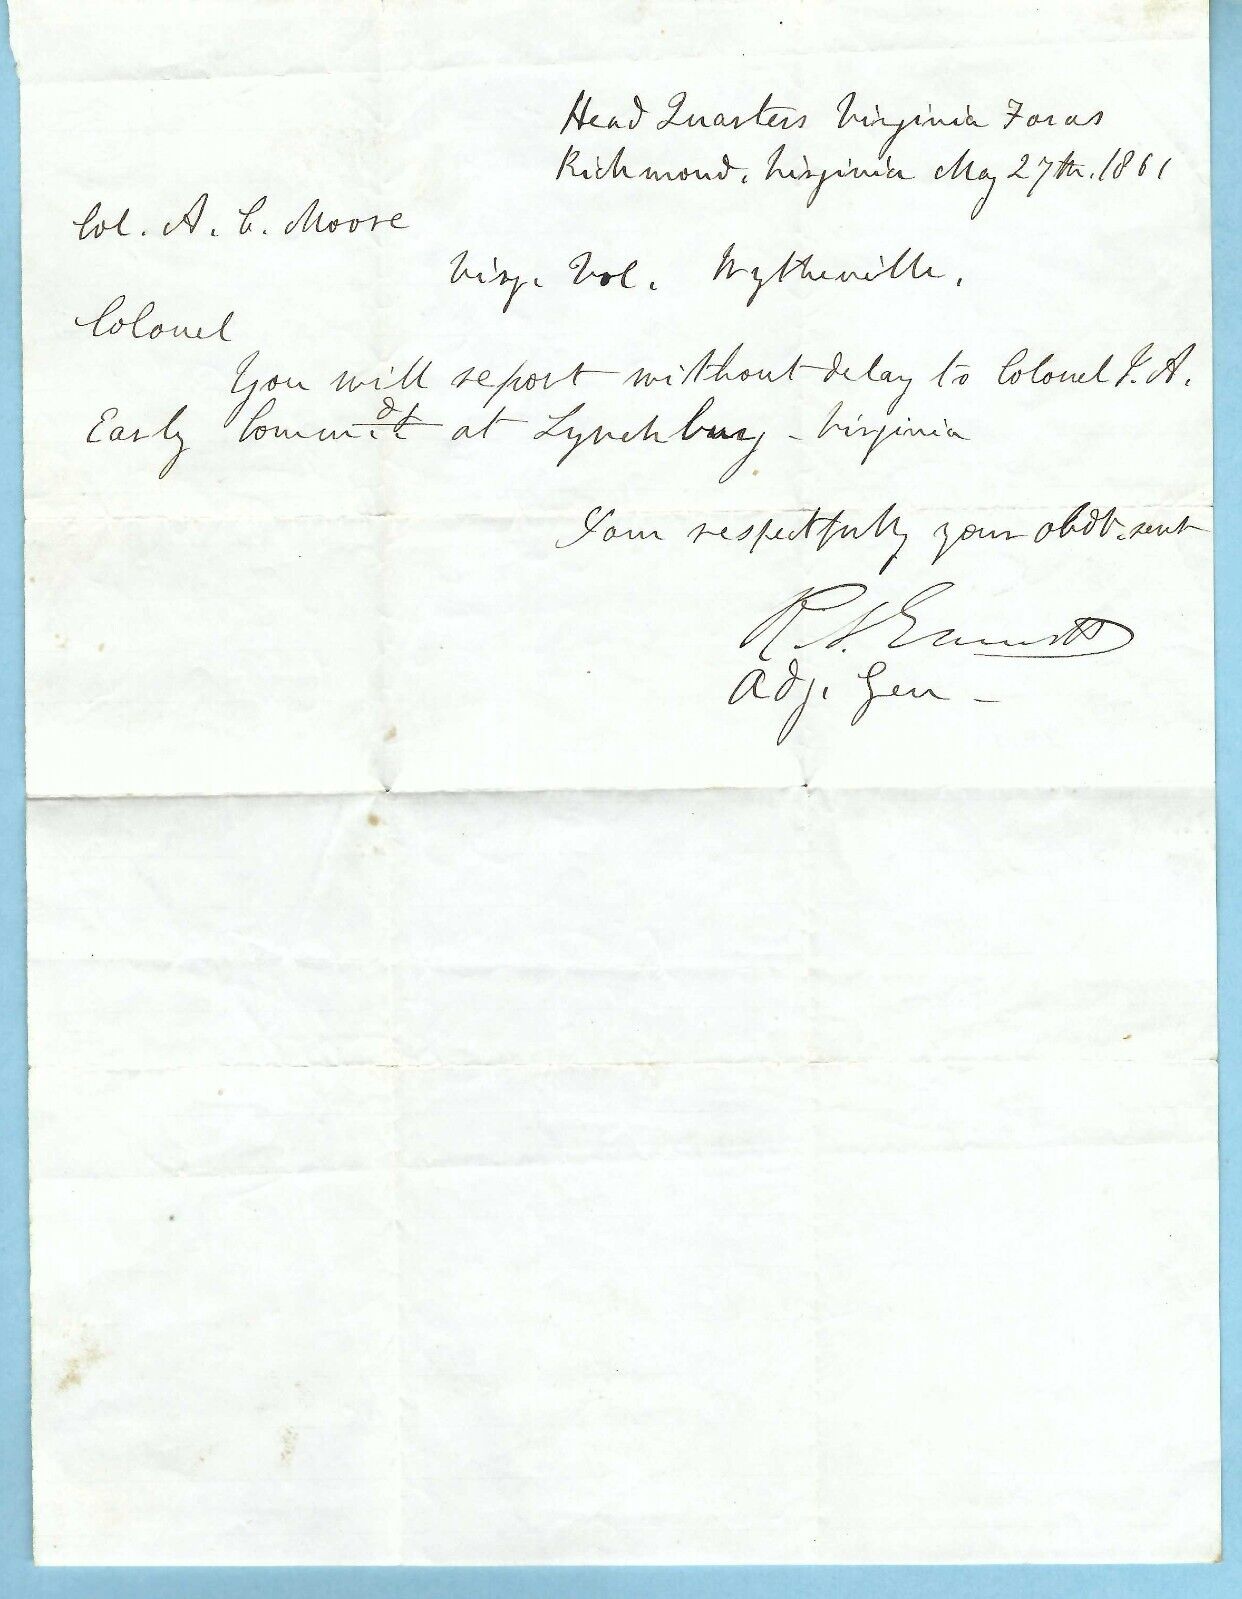 Head Quarters Virginia Forces
Richmond, Virginia May 27th. 1861
Col. A. C. Moore
Virg. Vol. Wytheville.
Colonel
You will report without delay to Colonel J. A.
Early Comm.dt at Lynchburg - Virginia
I am respectfully your obdt. servt
R. S. Garnett
Adj. Gen -